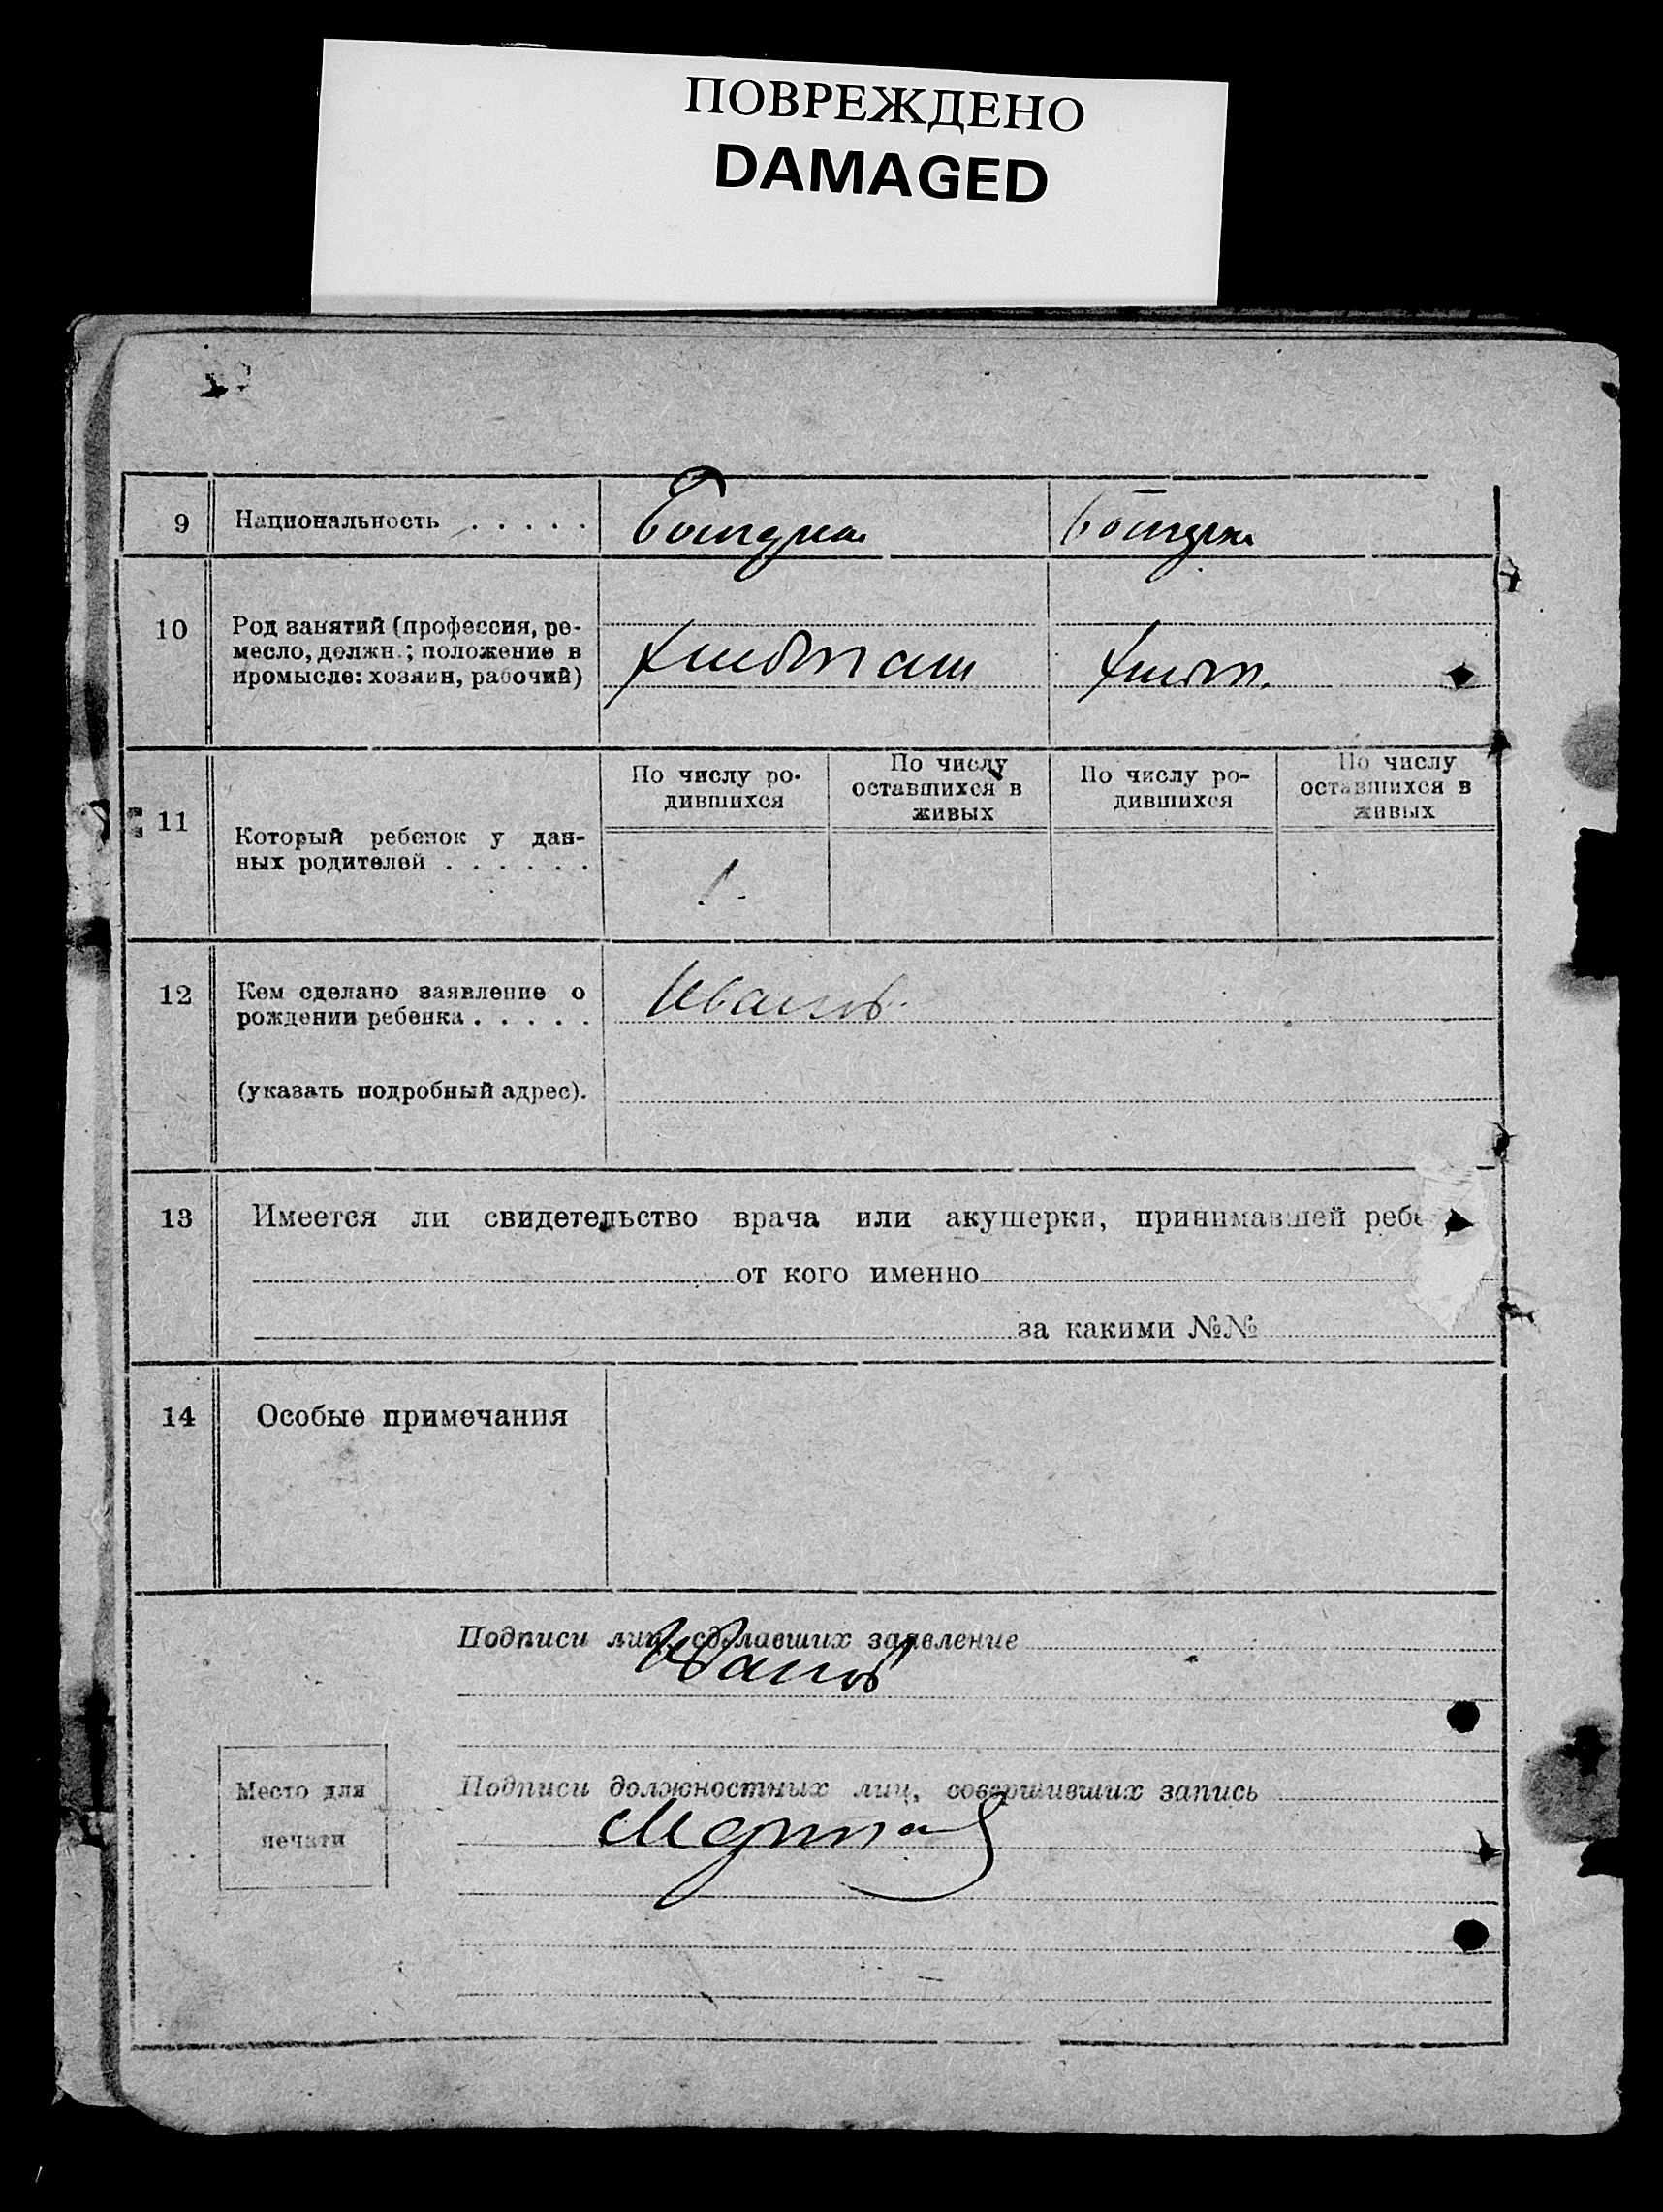 ПОВРЕЖДЕНО
DAMAGED
9 Национальность . . . . .
10 Род занятий (профессия, ре-
месло, должн.; положение в
промысле: хозяин, рабочий)
По числу ро-
дившихся
По числу
оставшихся в
живых
По числу ро-
дившихся
По числу
оставшихся в
живых
11 Который ребенок у дан-
ных родителей . . . . . .
1.
12 Кем сделано заявление о
рождении ребенка . . . . .
Иванов.
(указать подробный адрес).
13 Имеется ли свидетельство врача или акушерки, принимавшей ребе
от кого именно
за какими №№
14 Особые примечания
Подписи лиц, сделавших заявление
Иванов
Место для
печати
Подписи должностных лиц, совершивших запись